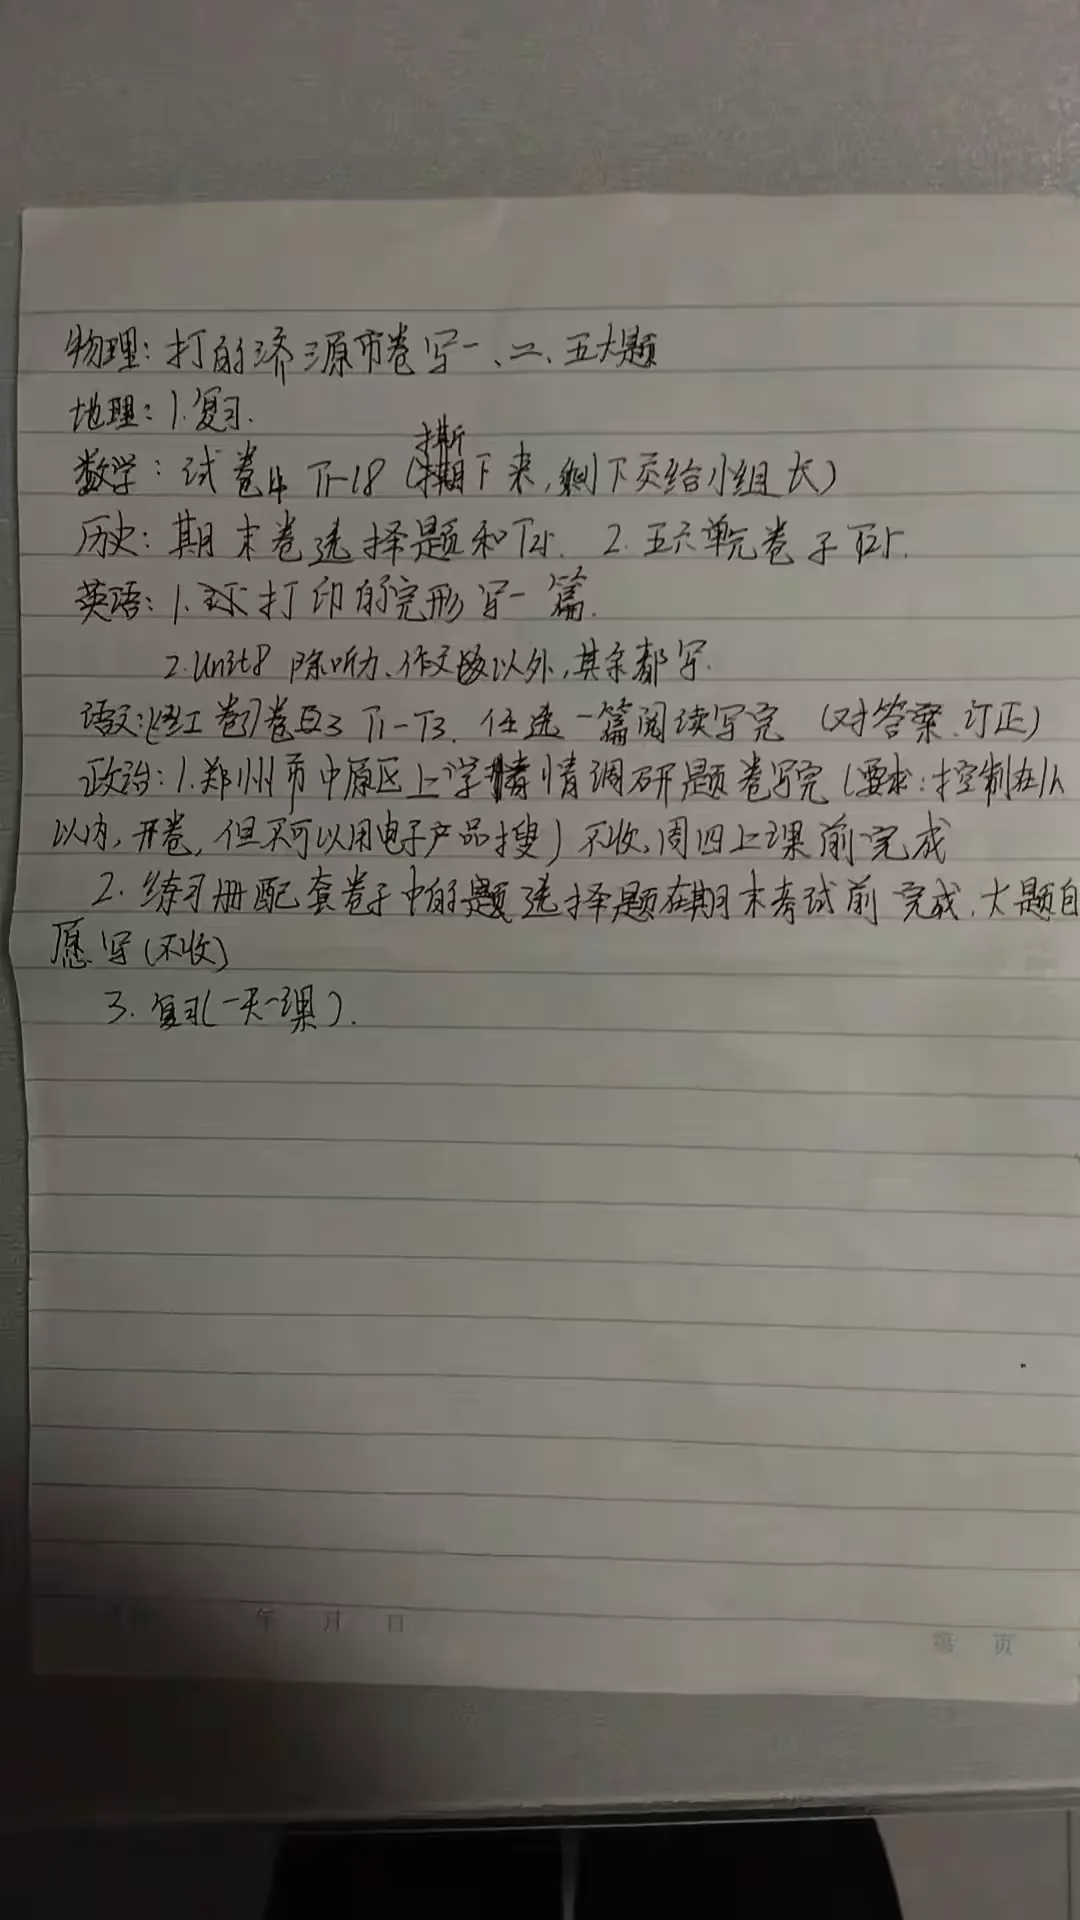 物理：打的济源市卷写一、二、五大题
地理：1.复习.
数学：试卷4 T1-18（撕下来，剩下交给小组长）
历史：期末卷选择题和T21. 2.五六单元卷子T21.
英语：1.打印的完形写一篇.
2.Unit8 除听力、作文以外，其余都写.
语文：《红卷》卷3 T1-T3. 任选一篇阅读写完（对答案、订正）
政治：1.郑州市中原区上学情调研题卷写完（要求：控制在1h
以内，开卷，但不可以用电子产品搜）不收，周四上课前完成
2.练习册配套卷子中的选择题在期末考试前完成，大题自
愿写（不收）
3.复习（一天一课）.
年 月 日
第 页